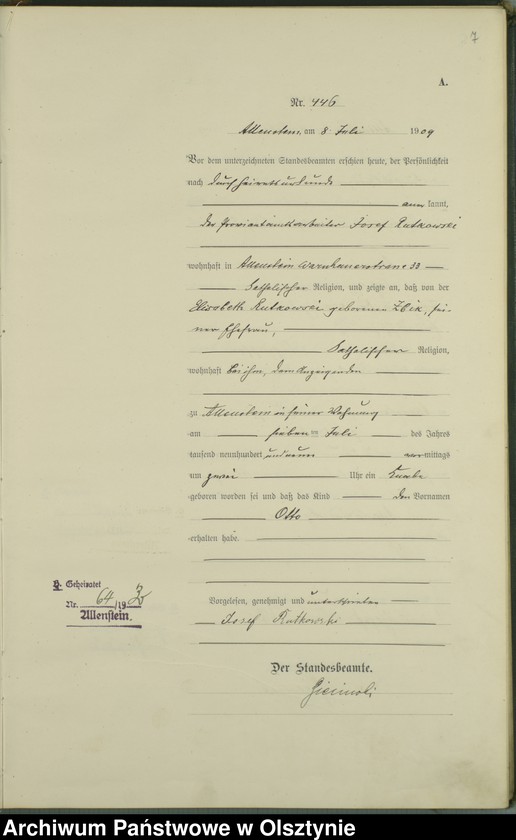 7
A.
Nr. 446
Allenstein am 8 Juli 1909
Vor dem unterzeichneten Standesbeamten erschien heute, der Persönlichkeit
nach durch Heiratsurkunde
kannt,
der Proviantamtsarbeiter Josef Rutkowski
wohnhaft in Allenstein 33
katholischer Religion, und zeigte an, daß von der
Elisabeth Rutkowski geborenen Zbik, sei-
ner Ehefrau,
katholischer Religion,
wohnhaft bei ihm, dem Anzeigenden
zu Allenstein in seiner Wohnung
am sieben ten Juli des Jahres
tausend neunhundert und neun vormittags
um zwei Uhr ein Knabe
geboren worden sei und daß das Kind den Vornamen
Otto
erhalten habe.
Vorgelesen, genehmigt und unterschrieben
Josef Rutkowski
Der Standesbeamte.
Geheiratet
Nr. 64/19
Allenstein.
Archiwum Państwowe w Olsztynie